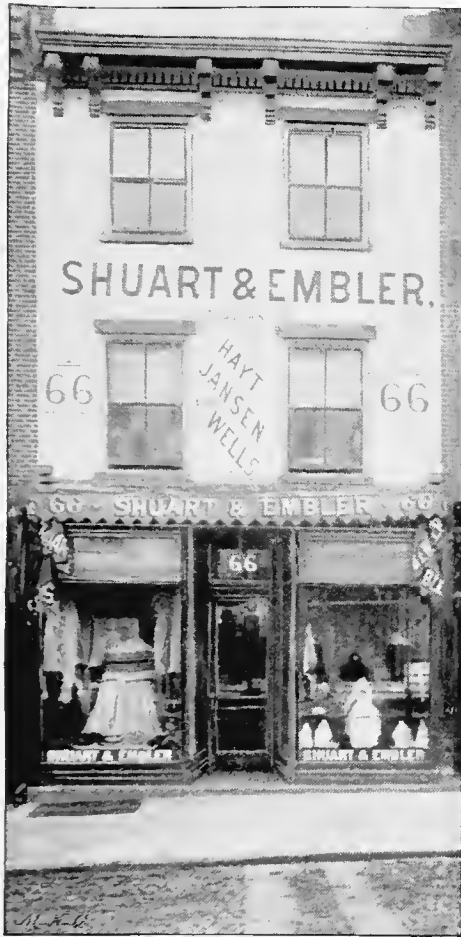 SHUART & EMBLER.
66
HAYT
JANSEN
WELLS
66
66 - SHUART & EMBLER - 66
66
SHUART & EMBLER
SHUART & EMBLER